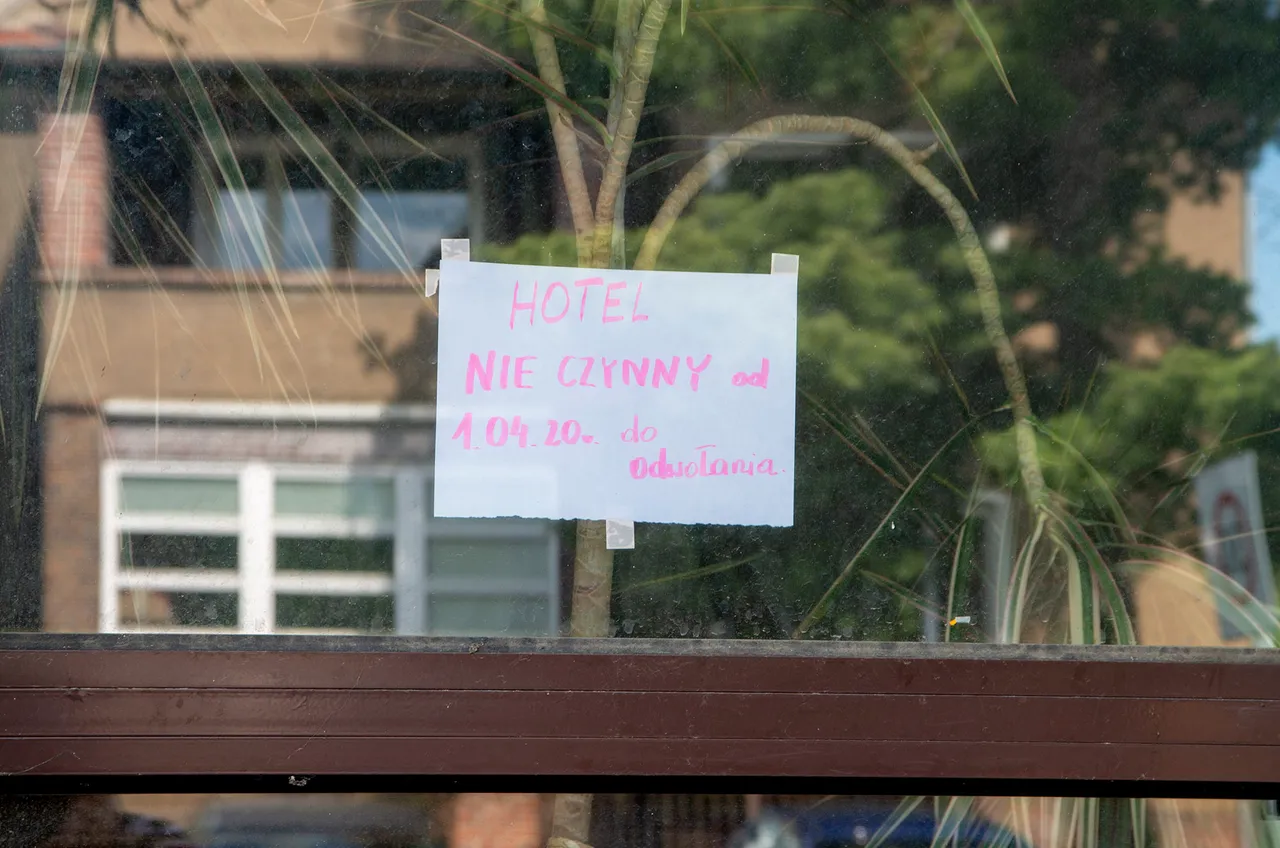 HOTEL
NIE CZYNNY od
1.04.20r. do
odwołania.